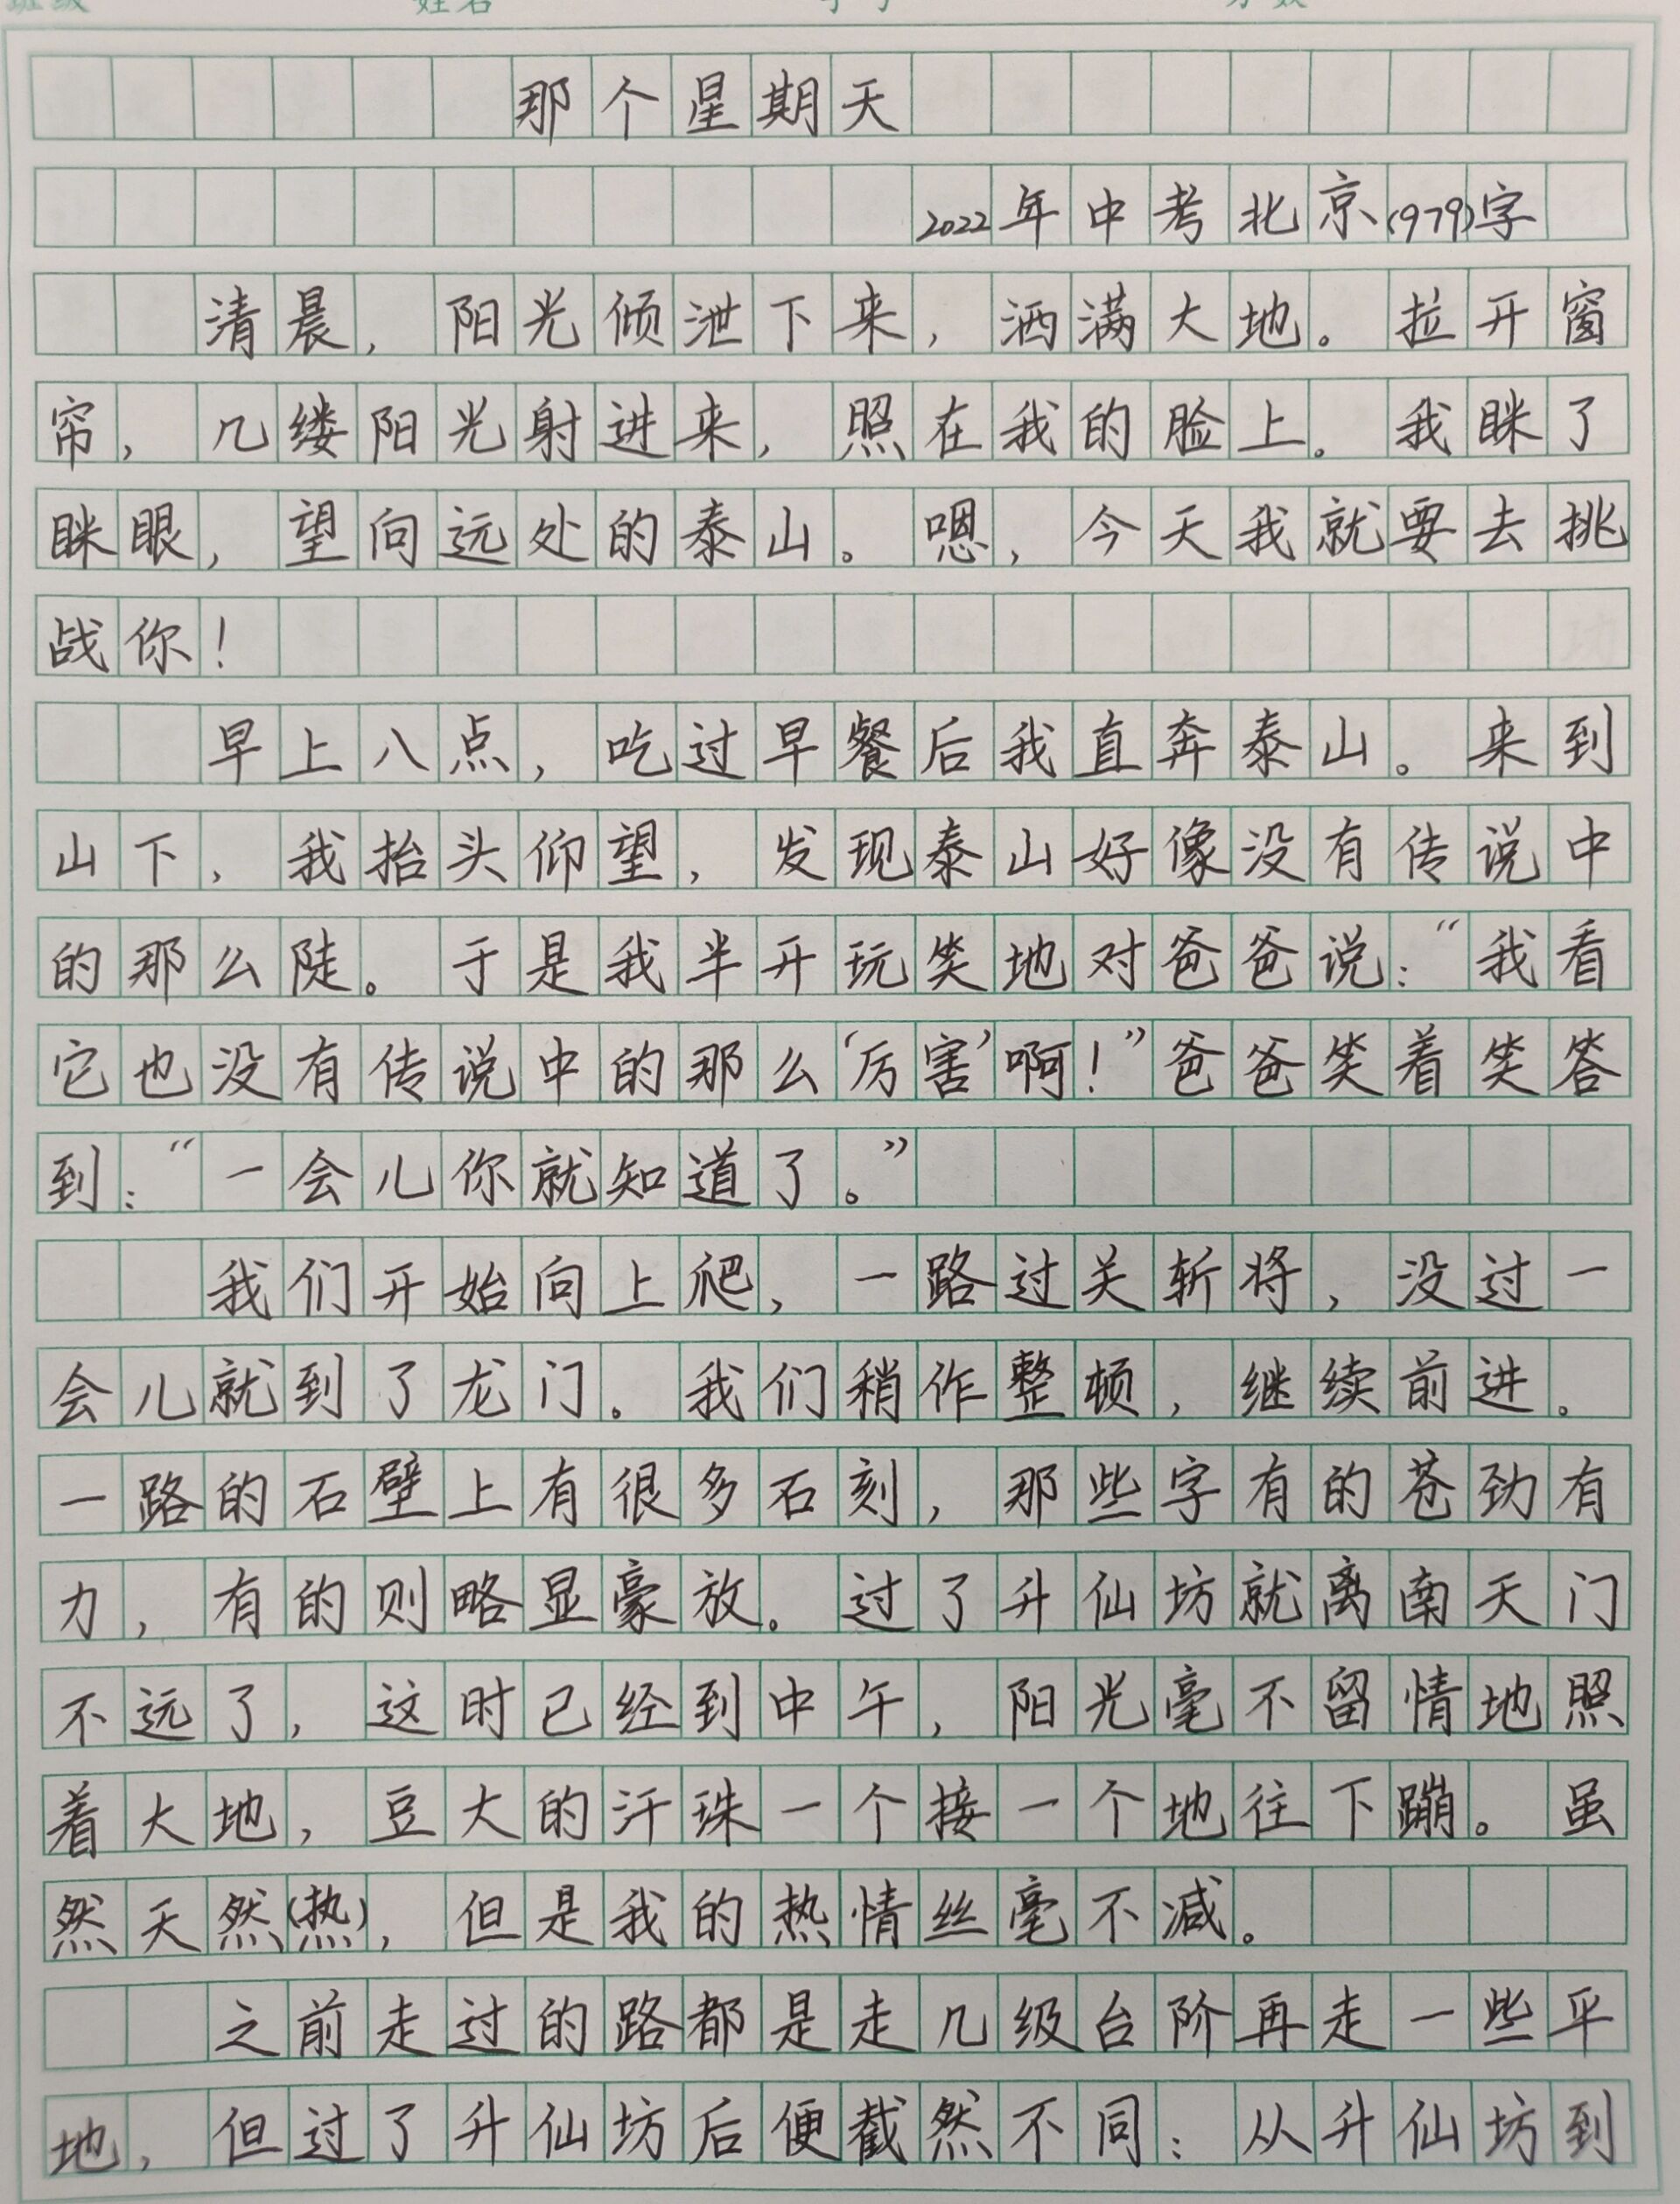 那个星期天
2022年中考北京(979)字
清晨，阳光倾泄下来，洒满大地。拉开窗
帘，几缕阳光射进来，照在我的脸上。我眯了
眯眼，望向远处的泰山。嗯，今天我就要去挑
战你！
早上八点，吃过早餐后我直奔泰山。来到
山下，我抬头仰望，发现泰山好像没有传说中
的那么陡。于是我半开玩笑地对爸爸说：“我看
它也没有传说中的那么‘厉害’啊！”爸爸笑着笑答
到：“一会儿你就知道了。”
我们开始向上爬，一路过关斩将，没过一
会儿就到了龙门。我们稍作整顿，继续前进。
一路的石壁上有很多石刻，那些字有的苍劲有
力，有的则略显豪放。过了升仙坊就离南天门
不远了，这时已经到中午，阳光毫不留情地照
着大地，豆大的汗珠一个接一个地往下蹦。虽
然天然(热)，但是我的热情丝毫不减。
之前走过的路都是走几级台阶再走一些平
地，但过了升仙坊后便截然不同：从升仙坊到